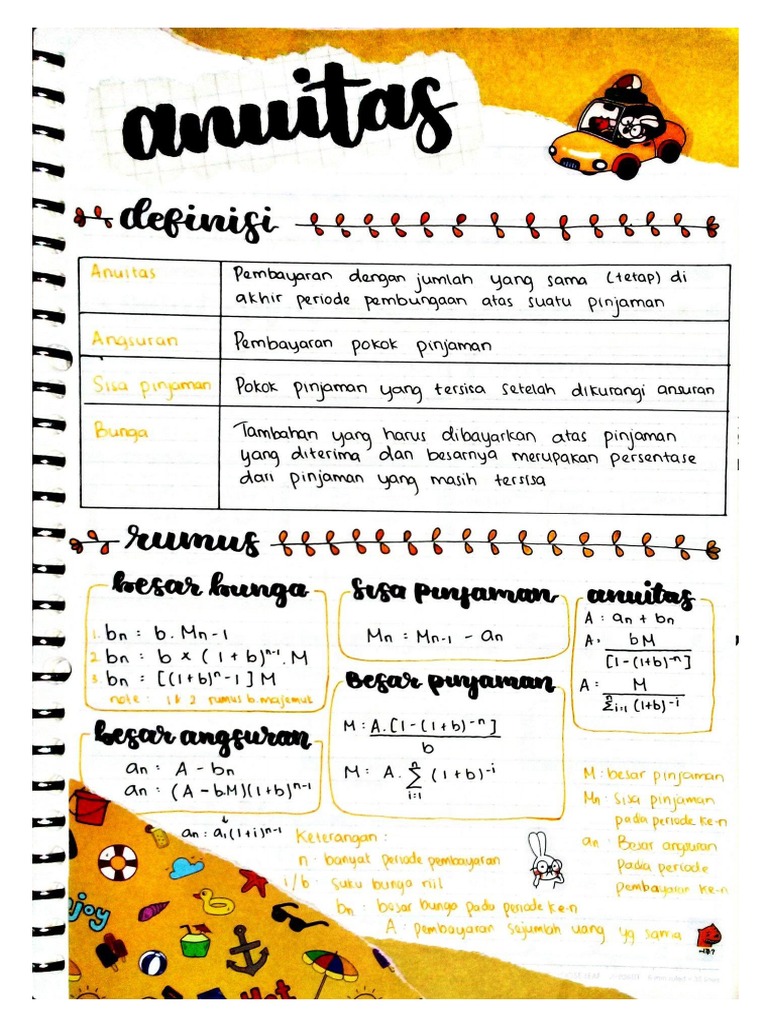 anuitas
definisi
Anuitas
Pembayaran dengan jumlah yang sama (tetap) di
akhir periode pembungaan atas suatu pinjaman
Angsuran
Pembayaran pokok pinjaman
Sisa pinjaman
Pokok pinjaman yang tersisa setelah dikurangi ansuran
Bunga
Tambahan yang harus dibayarkan atas pinjaman
yang diterima dan besarnya merupakan persentase
dari pinjaman yang masih tersisa
rumus
besar bunga
1. bn = b. Mn-1
2. bn = b × (1 + b)ⁿ⁻¹. M
3. bn = [(1+b)ⁿ - 1] M
note : 1 & 2 rumus b.majemuk
sisa pinjaman
Mn = Mn-1 - an
anuitas
A : an + bn
A : bM
[1-(1+b)⁻ⁿ]
A : M
Σⁿi=1 (1+b)⁻ⁱ
besar pinjaman
M : A. [1 - (1 + b)⁻ⁿ]
b
M : A. Σ (1 + b)⁻ⁱ
n
i=1
besar angsuran
an = A - bn
an = (A - b.M)(1+b)ⁿ⁻¹
↓
an = a₁(1+i)ⁿ⁻¹
Keterangan :
n : banyat periode pembayaran
i/b : suku bunga
bn : besar bunga pada periode ke-n
A : pembayaran sejumlah uang yg sama
M : besar pinjaman
Mn : sisa pinjaman
pada periode ke-n
an : Besar angsuran
pada periode
pembayaran ke-n
njoy
Hot